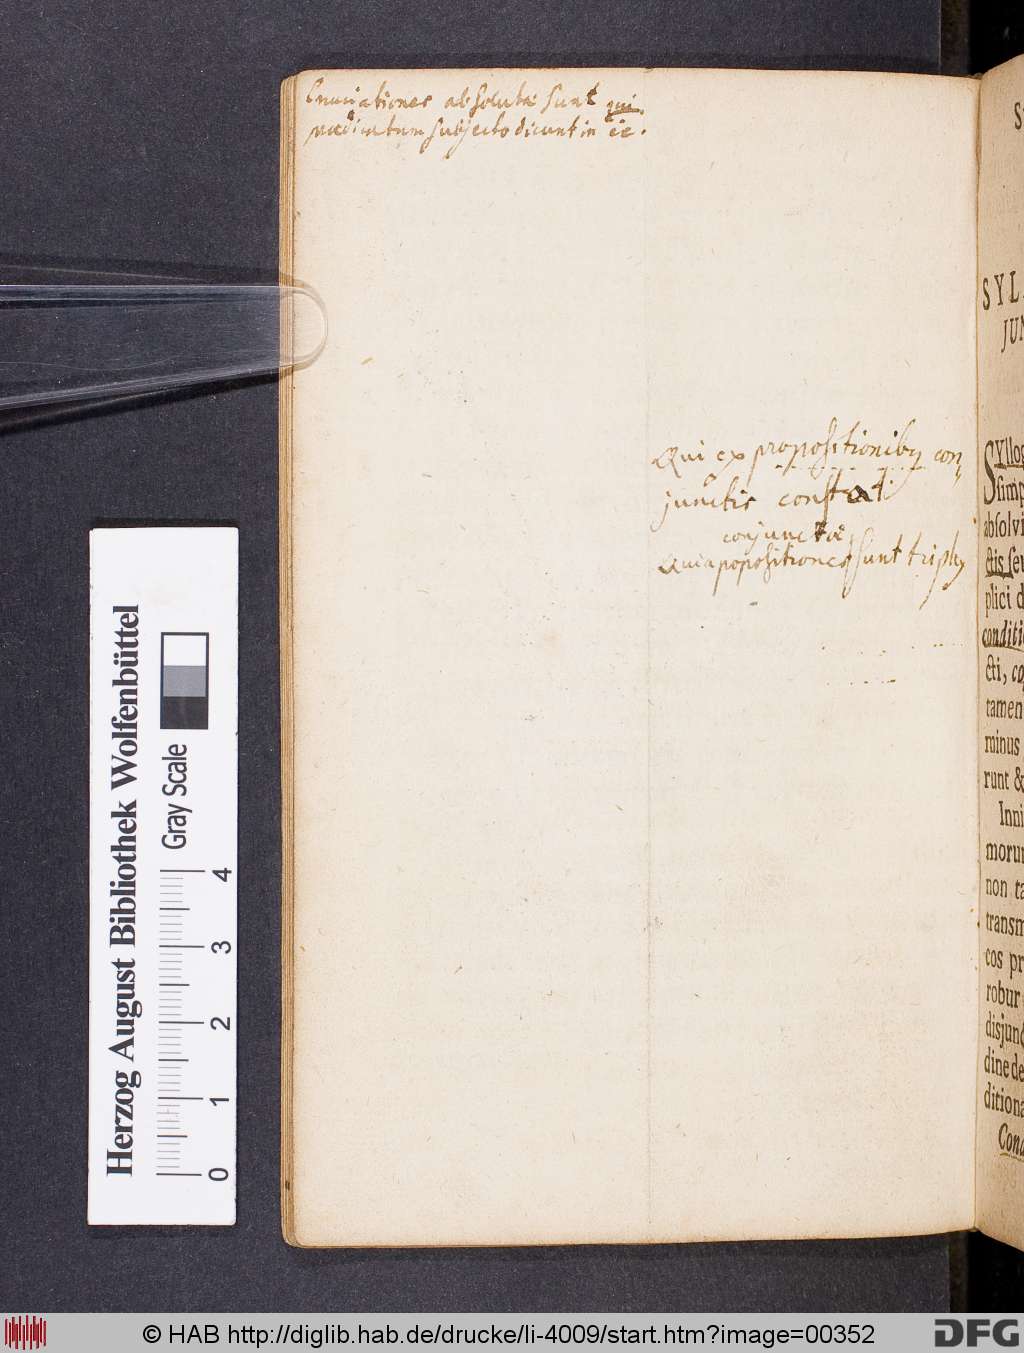 Enunciationes absolutæ sunt qui
prædicatum subjecto dicunt in
Qui ex propositionibꝫ con,
junctis constat.
conjunctæ
Quia popositiones sunt triplex
S
SYL
JUN
SYllog
simp
absolvi
ctis seu
plici d
conditio
cti, co
tamen
minus
runt &
Inni
morum
non ta
transm
cos pr
robur
disjunc
dine de
ditiona
Cond
Herzog August Bibliothek Wolfenbüttel
Gray Scale
0 1 2 3 4
© HAB http://diglib.hab.de/drucke/li-4009/start.htm?image=00352
DFG